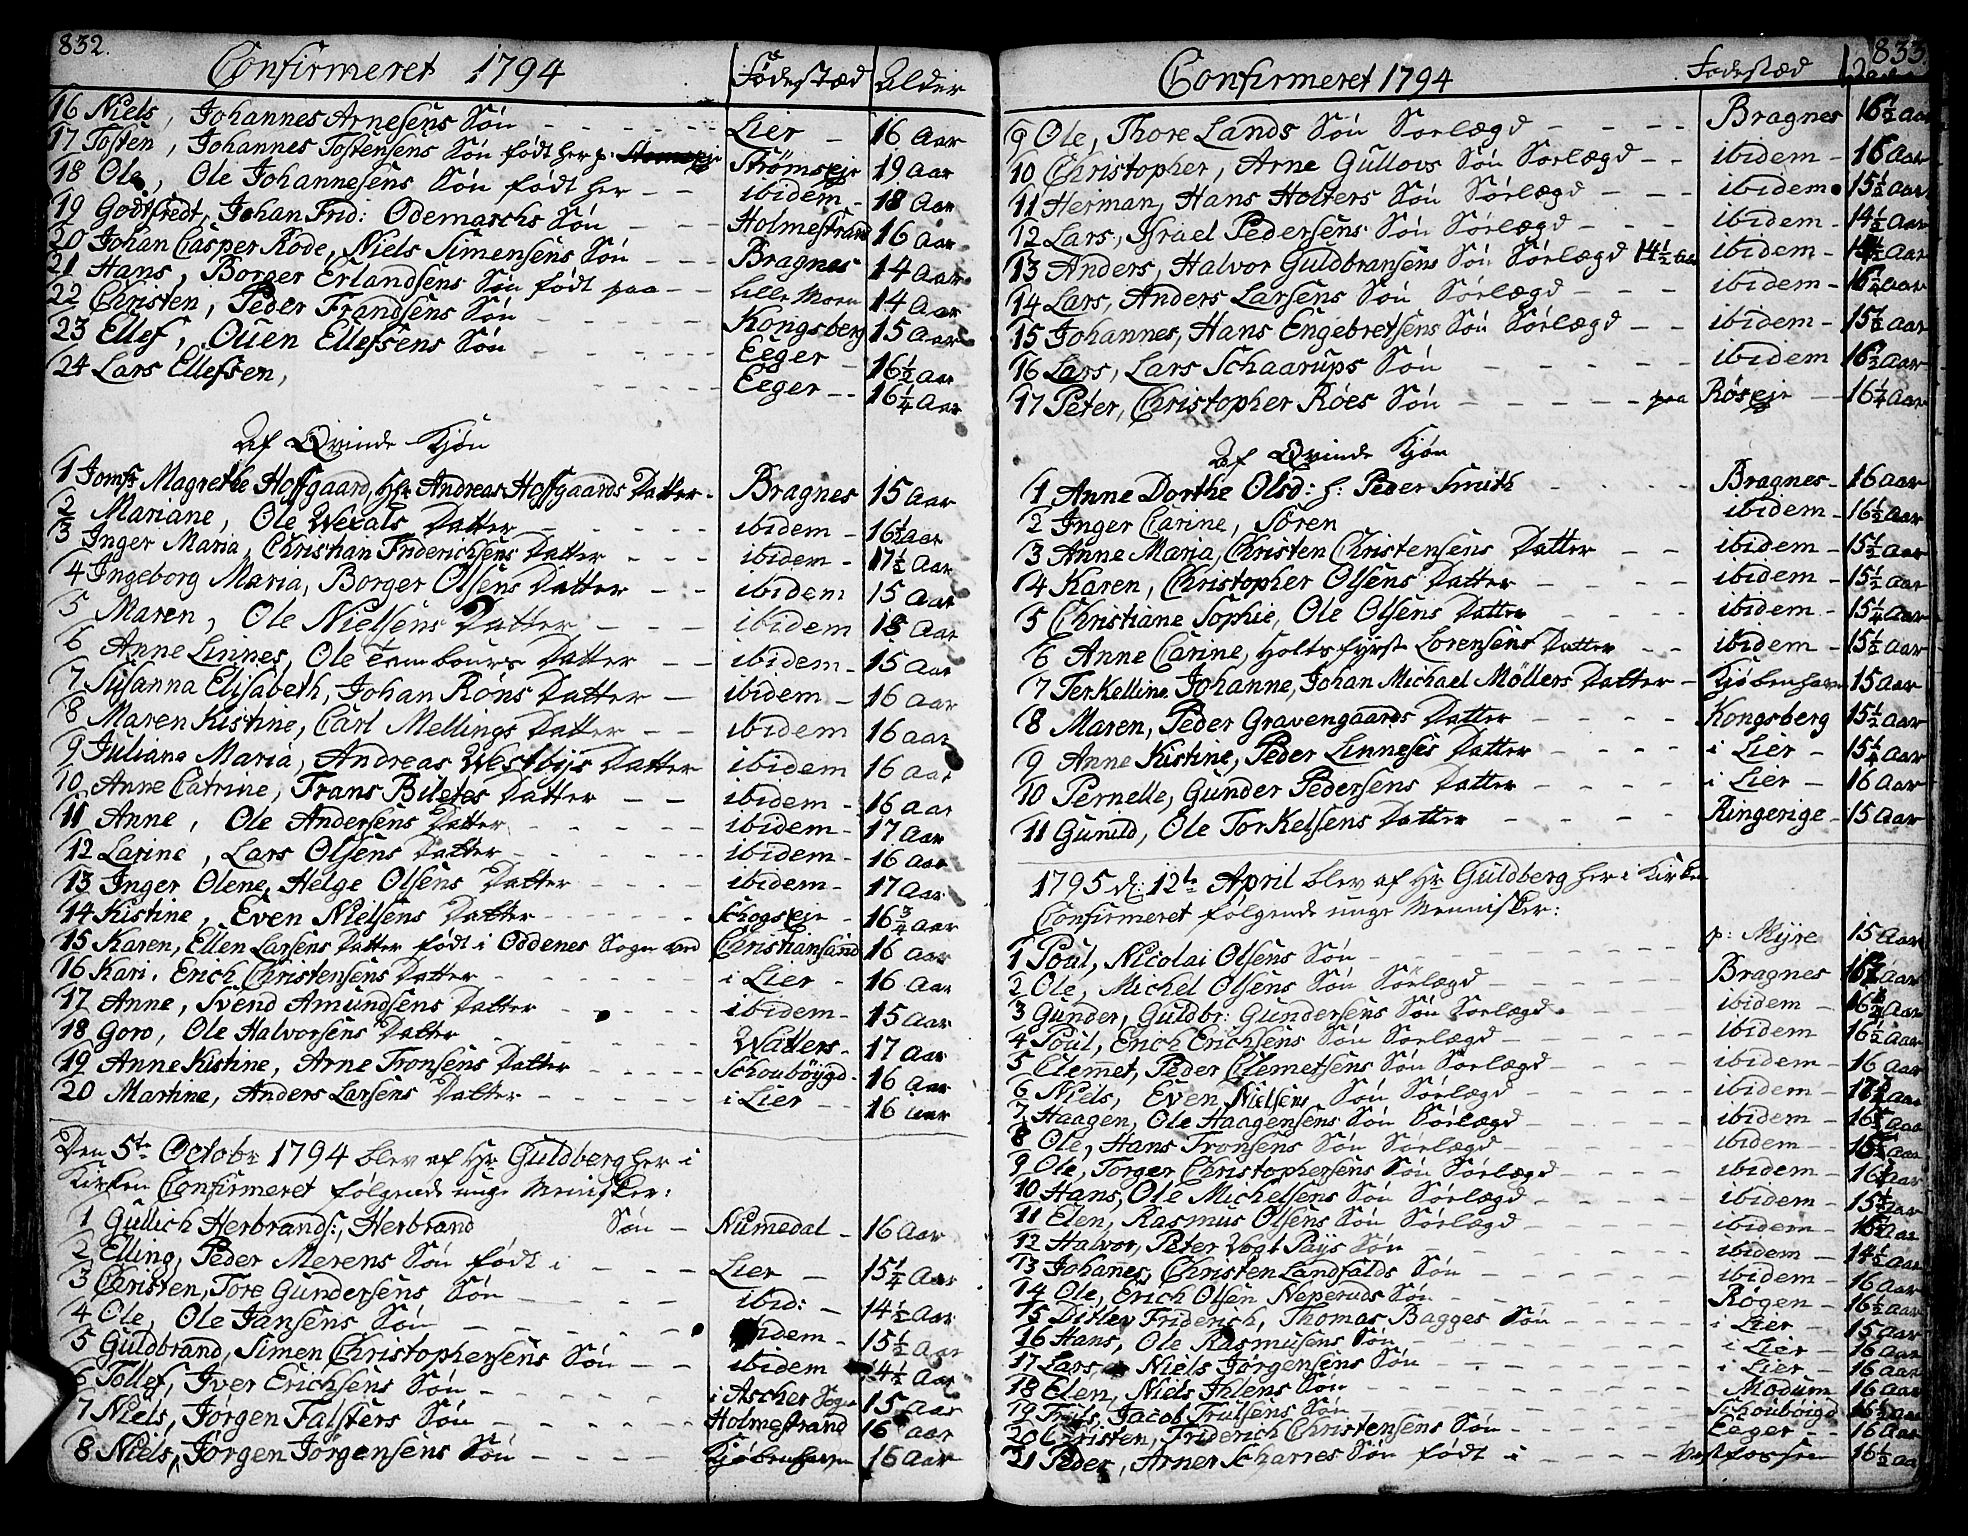 832.
Confirmeret 1794 Födestæd Alder
16 Niels, Johannes Arnesens Sön - - - - - - Lier - 16 Aar
17 Tosten, Johannes Tostensens Sön födt her p: Strömseje 19 Aar
18 Ole, Ole Johannesens Sön födt her - - ibidem - 18 Aar
19 Godtfredt, Johan Frid: Odemarchs Sön - - - Holmestrand 16 Aar
20 Johan Casper Rode, Niels Simensens Sön - - - Bragnes 14 Aar
21 Hans, Borger Erlandsens Sön födt paa - - Lille Moen 14 Aar
22 Christen, Peder Frandsens Sön - - - - - Kongsberg 15 Aar
23 Ellef, Ouen Ellefsens Sön - - - - - Eeger - 16 1/2 Aar
24 Lars Ellefsen, - - - - - Eeger - - 16 1/4 Aar
Af Qvinde Kjön
1 Jomfr Magrethe Hoffgaard, Hr Andreas Hoffgaards Datter - Bragnes 15 Aar
2 Mariane, Ole Wexals Datter - - - - - ibidem - 16 1/2 Aar
3 Inger Maria, Christian Friderichsens Datter - - - ibidem - 17 1/2 Aar
4 Ingeborg Maria, Borger Olsens Datter - - ibidem 15 Aar
5 Maren, Ole Nielsens Datter - - - ibidem 18 Aar
6 Anne Linnes, Ole Tambours Datter - - ibidem - 15 Aar
7 Susanna Elisabeth, Johan Röns Datter - ibidem - 16 Aar
8 Maren Kistine, Carl Mellings Datter - - ibidem 16 Aar
9 Juliana Maria, Andreas Westbijs Datter ibidem 16 Aar
10 Anne Catrine, Frans Biletes Datter - - ibidem - 16 Aar
11 Anne, Ole Andersens Datter - - - - - ibidem - 17 Aar
12 Larine, Lars Olsens Datter - - - - - ibidem - 16 Aar
13 Inger Olene, Helge Olsens Datter - - - - ibidem - 17 Aar
14 Kistine, Even Nielsens Datter - - - - - Schogseje - 16 3/4 Aar
15 Karen, Ellen Larsens Datter födt i Oddenes Sogn ved Christiansund 16 Aar
16 Kari, Erich Christensens Datter - - - - - i Lier - 16 Aar
17 Anne, Svend Amundsens Datter - - - - ibidem - 15 Aar
18 Goro, Ole Halvorsens Datter - - - - - Watters - 17 Aar
19 Anne Kistine, Arne Tronsens Datter - - - - - Schouböygd - 16 Aar
20 Martine, Anders Larsens Datter - - - - - i Lier - - 16 Aar
Den 5te Octobr 1794 blev af Hr Guldberg her i
Kirken Confirmeret fölgende unge Menisker:
1 Gullich Herbrands:, Herbrand Sön - Numedal - 16 Aar
2 Elling, Peder Merens Sön födt i - - - - Lier - 15 1/4 Aar
3 Christen, Tore Gundersens Sön - - - - ibid: - 14 1/2 Aar
4 Ole, Ole Jansens Sön - - - - - ibidem - 15 1/2 Aar
5 Guldbrand, Simen Christophersens Sön - - - ibidem 14 1/2 Aar
6 Tollef, Iver Erichsens Sön - - - - - i Ascher Sogn 15 Aar
7 Niels, Jörgen Falsters Sön - - - - - Holmestrand 16 Aar
8 Niels, Jörgen Jörgensens Sön - - - - Kjöbenhavn 16 Aar
833.
Confirmeret 1794 Fodestæd Alder
9 Ole, Thore Lands Sön Sorlægd - - - - Bragnes 16 1/2 Aar
10 Christopher, Arne Gullovs Sön Sorlægd - - ibidem - 16 Aar
11 Herman, Hans Holters Sön Sörlægd - - - ibidem 15 1/2 Aar
12 Lars, Israel Pedersens Sön Sörlægd - - - ibidem - 14 1/2 Aar
13 Anders, Halvor Guldbransens Sön Sörlægd 14 1/2 Aar ibidem - 14 1/2 Aar
14 Lars, Anders Larsens Sön Sörlægd - - - ibidem - 16 1/2 Aar
15 Johannes, Hans Engebretsens Sön Sörlægd - - ibidem - 15 1/2 Aar
16 Lars, Lars Schaarups Sön - - - - - ibidem 16 1/2 Aar
17 Peter, Christopher Röes Sön - - - - - paa Röseje - 16 1/4 Aar
Af Qvinde Kjön
1 Anne Dorthe Olsd: f: Peder Smith - - - - Bragnes - 16 Aar
2 Inger Carine, Sören ibidem - 16 1/2 Aar
3 Anne Maria, Christen Christensens Datter - - ibidem - 15 1/2 Aar
4 Karen, Christopher Olsens Datter - - - - ibidem - 15 1/2 Aar
5 Christiane Sophie, Ole Olsens Datter - - - ibidem - 15 1/4 Aar
6 Anne Carine, Holtsfyrst Lorensens Datter - - ibidem - 15 1/2 Aar
7 Terkelline Johanne, Johan Michael Möllers Datter - Kjöbenhavn 15 Aar
8 Maren, Peder Gravengaards Datter - - - - Kongsberg 15 1/2 Aar
9 Anne Kistine, Peder Linneses Datter - - - - i Lier - 15 1/4 Aar
10 Pernelle, Gunder Pedersens Datter - - - - i Lier - 16 Aar
11 Gunild, Ole Torkelsens Datter - - - - - Ringerige - 15 Aar
1795 d: 12te April blev af Hr Guldberg her i Kirken
Confirmeret fölgende unge Mennisker:
1 Poul, Nicolai Olsens Sön - - - - - - p: Myre 15 Aar
2 Ole, Michel Olsens Sön Sörlægd - - - - - Bragnes 16 1/2 Aar
3 Gunder, Guldbr: Gundersens Sön Sorlægd - - - - ibidem - 16 1/2 Aar
4 Poul, Erich Erichsens Sön Sörlægd - - - - - ibidem 16 1/2 Aar
5 Clemet, Peder Clemetsens Sön Sörlægd - - - - ibidem - 16 Aar
6 Niels, Even Nielsens Sön Sörlægd - - - - - ibidem - 17 1/2 Aar
7 Haagen, Ole Haagensens Sön Sörlægd - - - - ibidem - 16 1/2 Aar
8 Ole, Hans Tronsens Sön Sörlægd - - - - - ibidem - 16 1/2 Aar
9 Ole, Torger Christophersens Sön Sörlægd - - - - ibidem - 16 1/2 Aar
10 Hans, Ole Michelsens Sön Sörlægd - - - - ibidem - 15 1/2 Aar
11 Elen, Rasmus Olsens Sön Sörlægd - - - - - ibidem - 16 Aar
12 Halvor, Peter Vogt Pays Sön - - - - - ibidem - 14 1/2 Aar
13 Johanes, Christen Landfalds Sön - - - - - ibidem - 16 Aar
14 Ole, Erich Olsen Neperuds Sön - - - - - Rögen - 16 1/2 Aar
15 Ditlev Friderich, Thomas Bagges Sön - - - - i Lier - 15 Aar
16 Hans, Ole Rasmusens Sön - - - - - i Lier - 16 Aar
17 Lars, Niels Jörgensens Sön - - - - - i Lier - 16 Aar
18 Elen, Niels Ihlens Sön - - - - - Modum 16 Aar
19 Truls, Jacob Trulsens Sön - - - - - Schouböigd 16 1/2 Aar
20 Christen, Friderich Christensens Sön - - - - - Eeger - - 16 Aar
21 Peder, Arner Scharres Sön födt i - - - Vestfossen 16 1/2 Aar